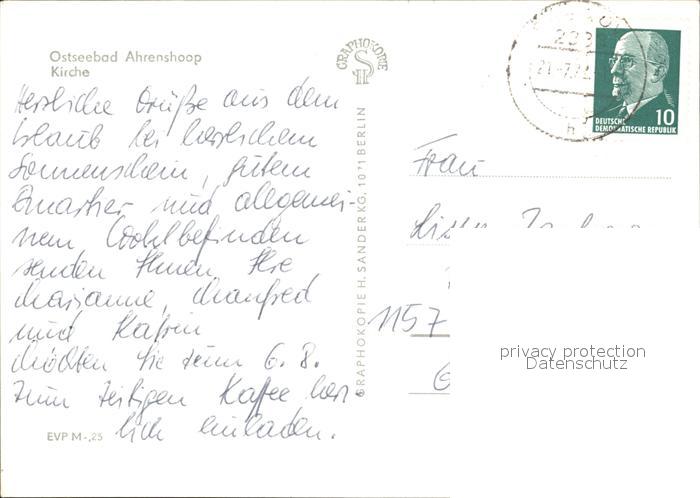 Ostseebad Ahrenshoop
Kirche
Herzliche Grüße aus dem
Urlaub bei herrlichem
Sonnenschein, gutem
Quartier und allgemei-
nem Wohlbefinden
senden Ihnen Ihre
Marianne, Manfred
und Katrin
Möchten Sie zum 6. 8.
zum zeitigen Kaffee herz-
lich einladen.
EVP M -,25
GRAPHOKOPIE
GRAPHOKOPIE H. SANDER KG, 1071 BERLIN
10
DEUTSCHE
DEMOKRATISCHE REPUBLIK
Frau
1157
privacy protection
Datenschutz